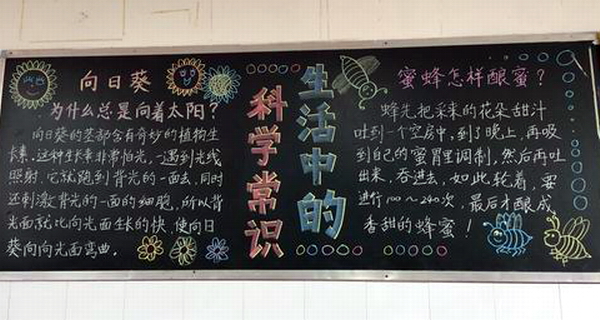 向日葵
为什么总是向着太阳？
向日葵的茎部含有奇妙的植物生
长素，这种生长素非常怕光，一遇到光线
照射，它就跑到背光的一面去，同时
还刺激背光的一面的细胞，所以背
光面就比向光面生长的快，使向日
葵向向光面弯曲。
科学常识
生活中的
蜜蜂怎样酿蜜？
蜂先把采来的花朵甜汁
吐到一个空房中，到了晚上，再吸
到自己的蜜胃里调制，然后再吐
出来，吞进去，如此轮着，要
进行100～240次，最后才酿成
香甜的蜂蜜！